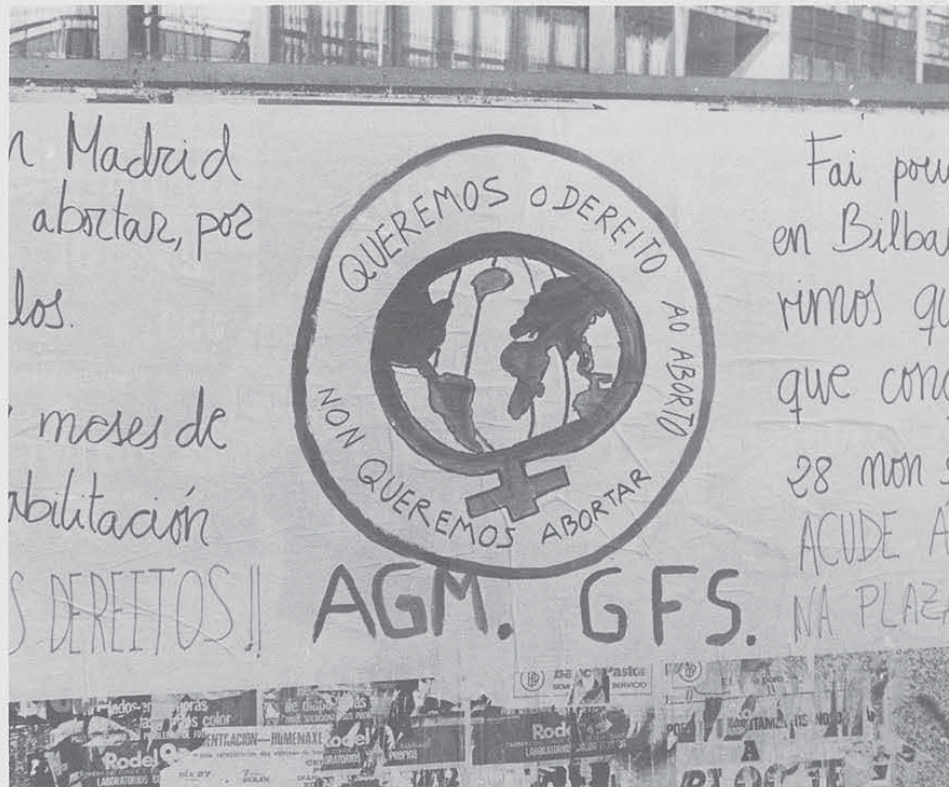 n Madrid
abortar, por
los.
meses de
abilitación
S DEREITOS!!
QUEREMOS O DEREITO AO ABORTO
NON QUEREMOS ABORTAR
AGM. GFS.
Fai pou
en Bilba
rimos qu
que cond
28 non s
ACUDE A
NA PLAZ
Banco Pastor
SERVICIO
color
Rodel
LABORATORIOS
CENTRACION—HUMENAXE
Rodel
LABORATORIOS
PROPIOS
Rodel
LABORATORIOS
A